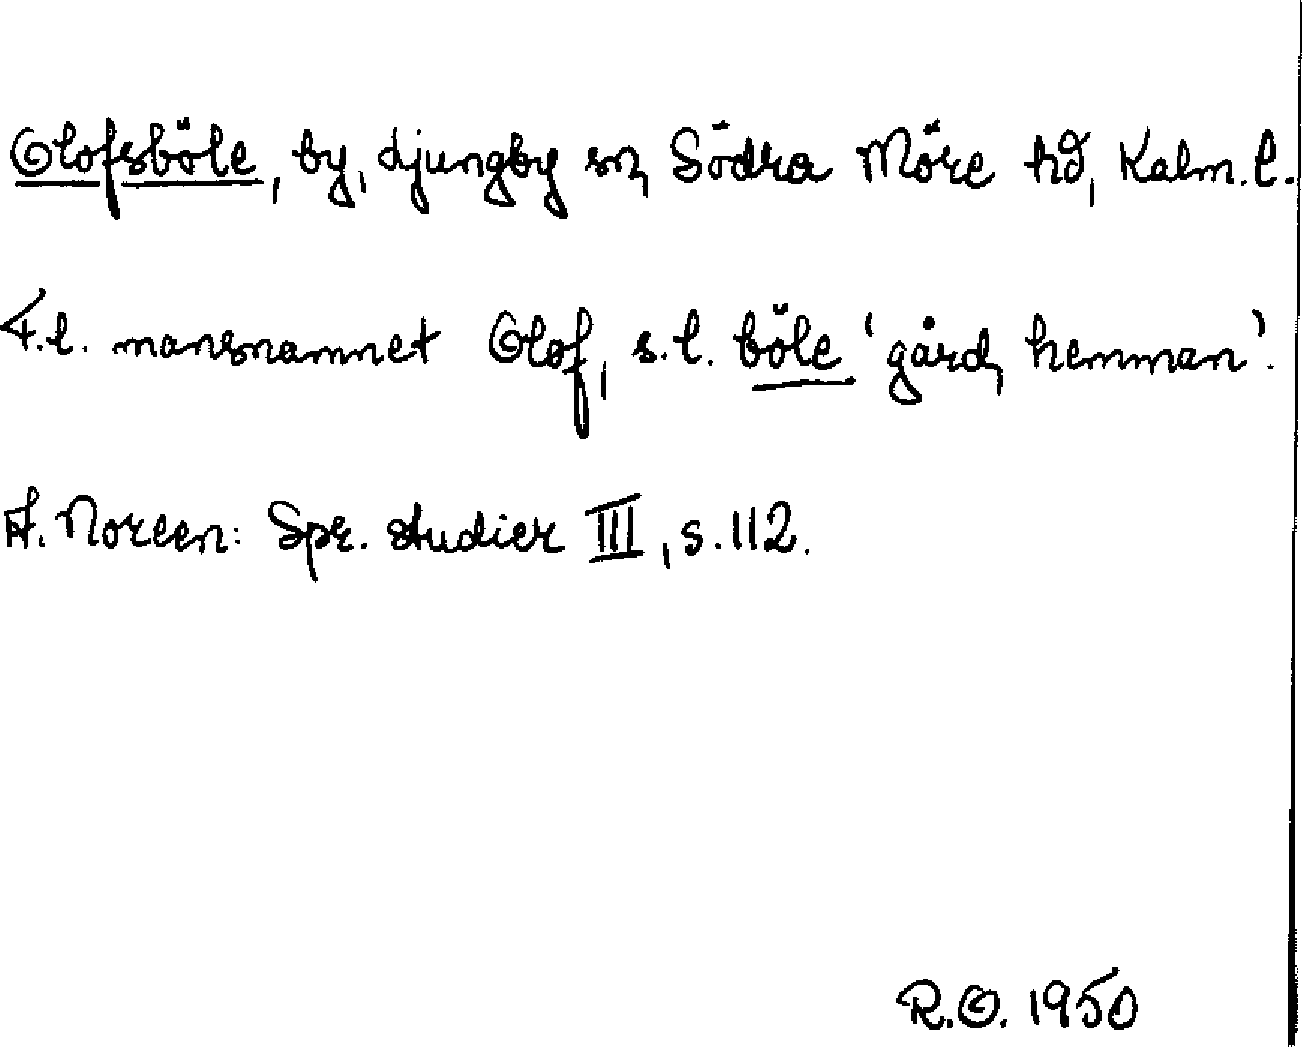 Olofsböle, by, Ljungby sn, Södra Möre hd, Kalm. l.
F.l. mansnamnet Olof, s.l. böle 'gård, hemman'.
A. Noreen: Spr. studier III, s. 112.
R.O. 1950